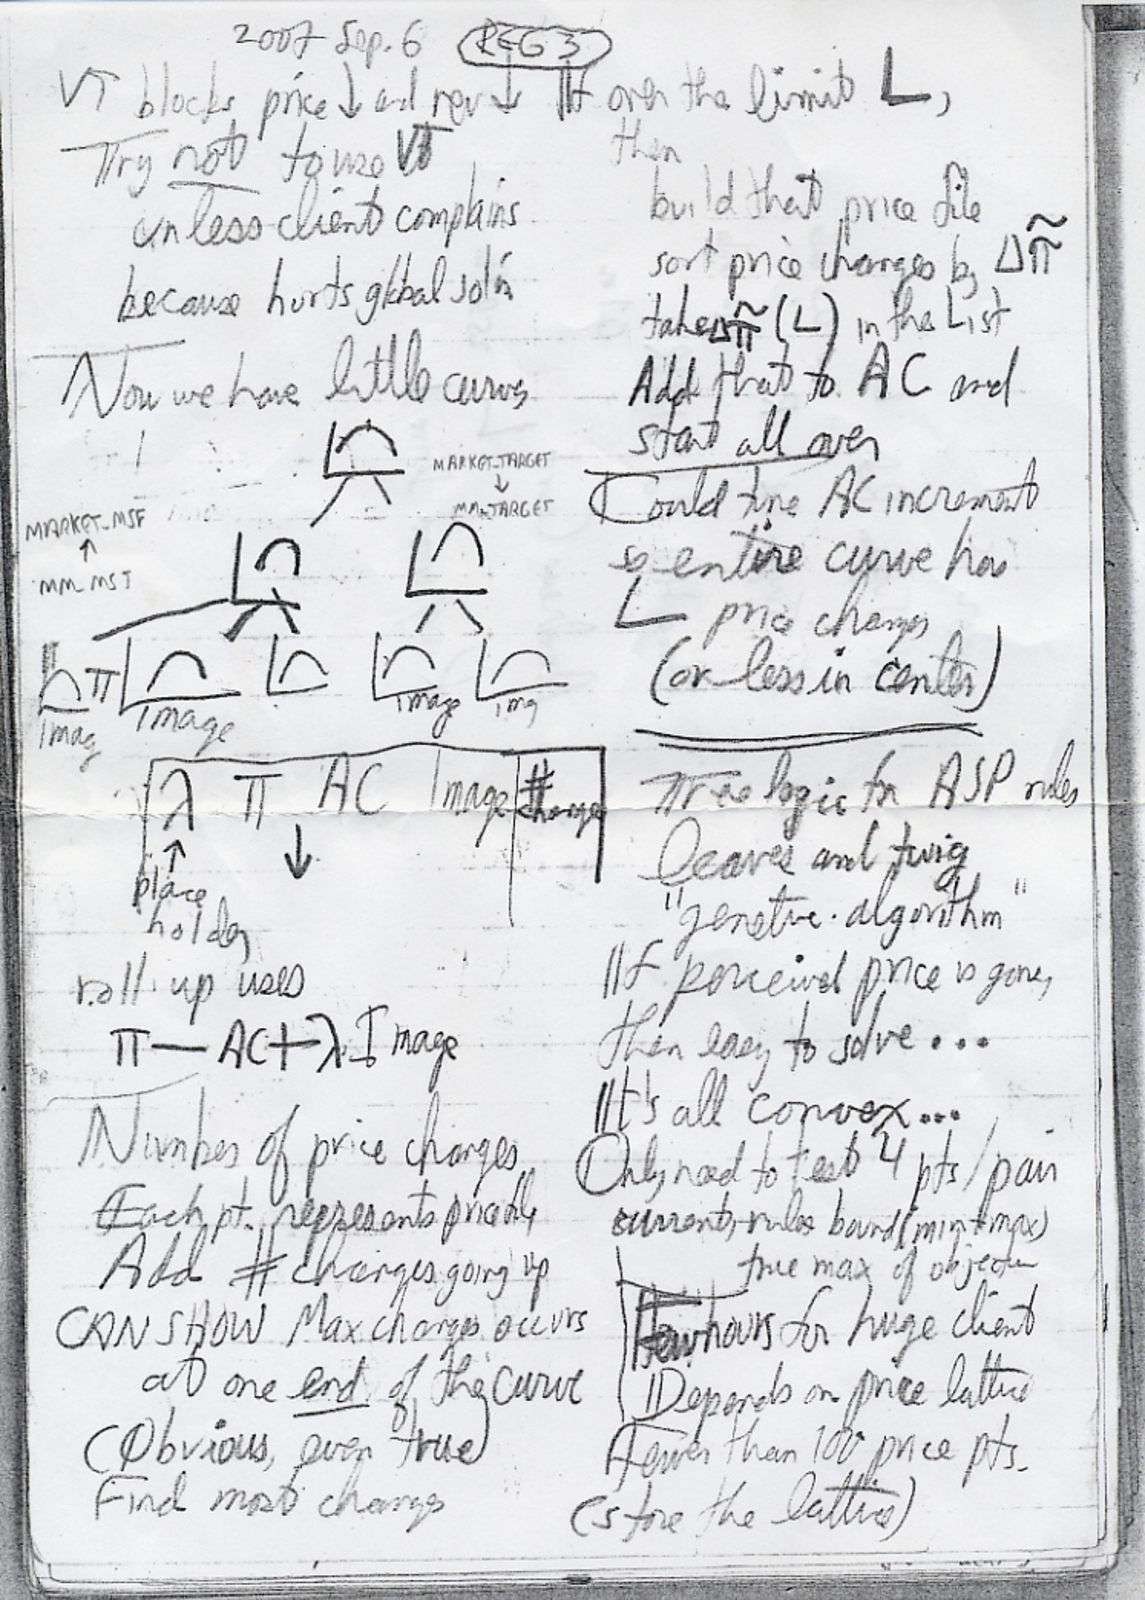 2007 Sep. 6 REG 3
VT blocks price ↓ and rev ↓
Try not to use VT
unless client complains
because hurts global sol'n
Now we have little curves
MARKET_TARGET
↓
MM_TARGET
MARKET_MSF
↑
MM_MST
π
Imag
π
Image
Image
Img
λ π AC Image # changes
↑ ↓
place
holder
roll-up uses
π — AC + λ · Image
Number of price changes
Each pt. represents price file
Add # changes going up
CAN SHOW Max changes occurs
at one end of the curve
(Obvious, even true)
Find most change
If over the limit L,
then
build that price file
sort price changes by Δπ̃
take Δπ̃ (L) in the List
Add that to AC and
start all over
Could tune AC increment
so entire curve has
L price changes
(or less in center)
Tree logic for ASP rules
leaves and twig
"genetic algorithm"
If perceived price is gone,
then easy to solve...
It's all convex...
Only need to test 4 pts/pair
current, rules bound (min+max)
true max of objective
Few hours for huge client
Depends on price lattice
Fewer than 100 price pts.
(store the lattice)